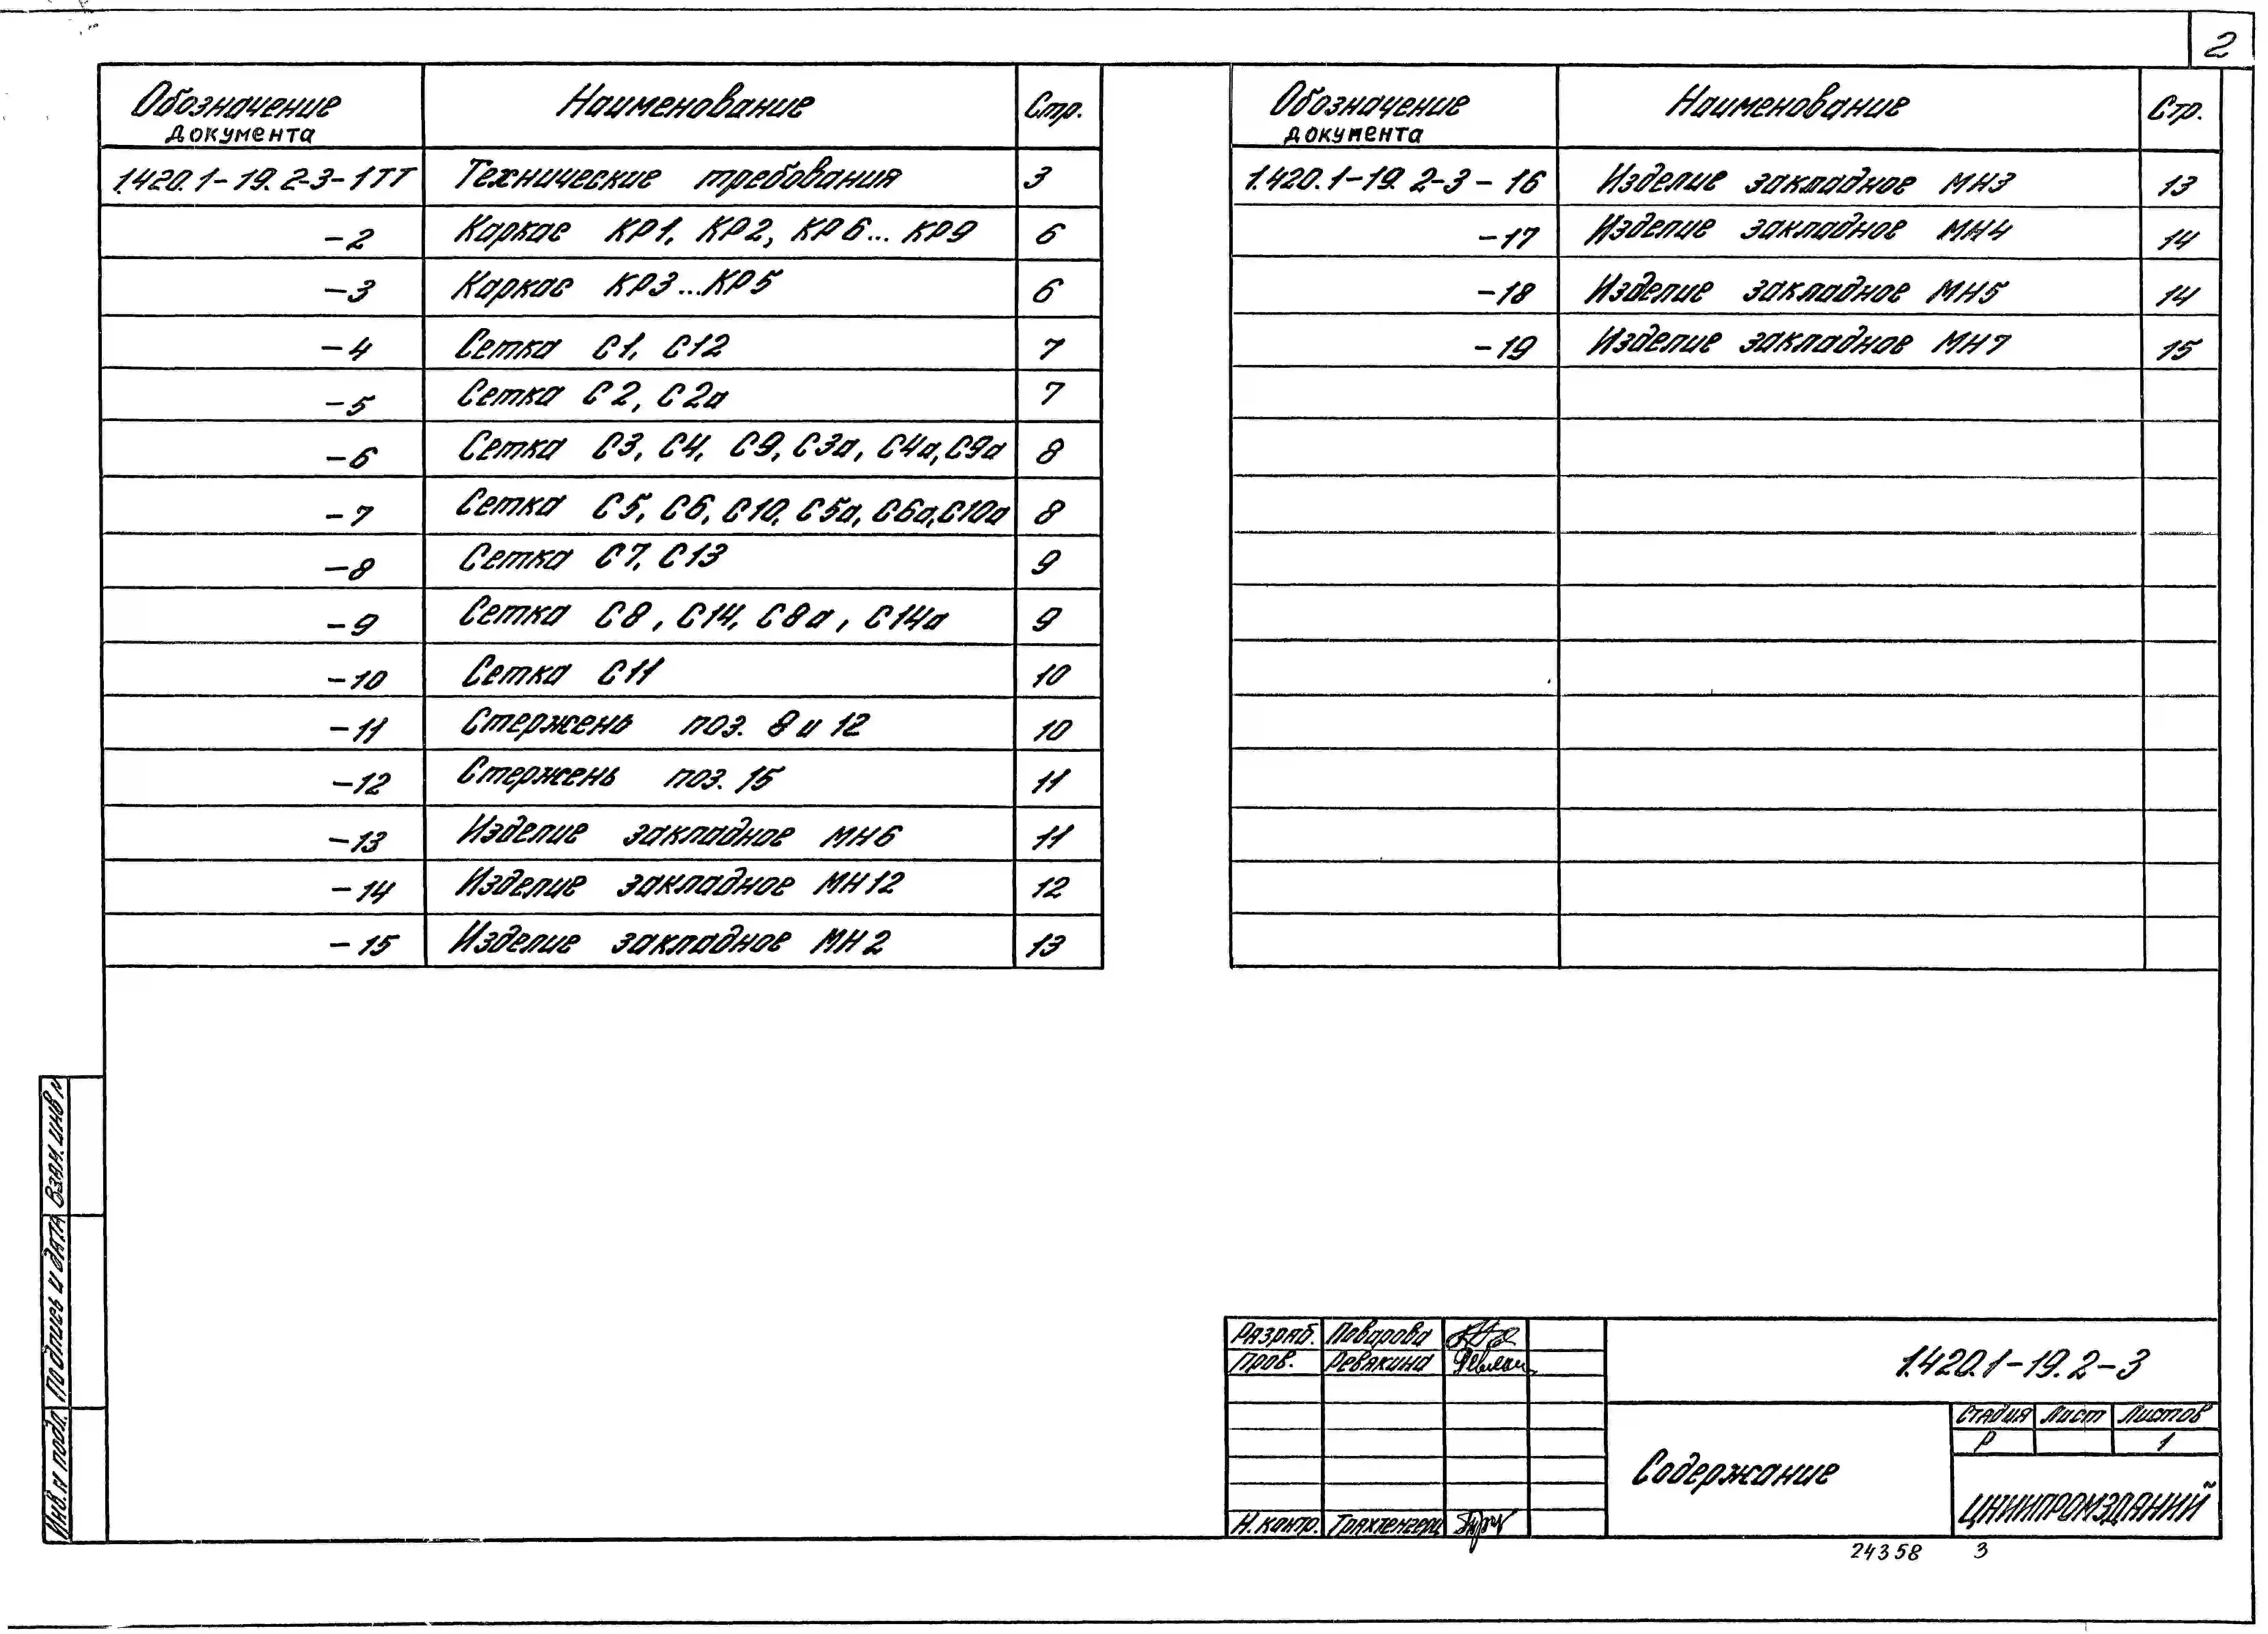 2
Обозначение документа Наименование Стр.
1.420.1-19.2-3-1ТТ Технические требования 3
-2 Каркас КР1, КР2, КР6... КР9 6
-3 Каркас КР3...КР5 6
-4 Сетка С1, С12 7
-5 Сетка С2, С2а 7
-6 Сетка С3, С4, С9, С3а, С4а, С9а 8
-7 Сетка С5, С6, С10, С5а, С6а, С10а 8
-8 Сетка С7, С13 9
-9 Сетка С8, С14, С8а, С14а 9
-10 Сетка С11 10
-11 Стержень поз. 8 и 12 10
-12 Стержень поз. 15 11
-13 Изделие закладное МН6 11
-14 Изделие закладное МН12 12
-15 Изделие закладное МН2 13
Обозначение документа Наименование Стр.
1.420.1-19.2-3-16 Изделие закладное МН3 13
-17 Изделие закладное МН4 14
-18 Изделие закладное МН5 14
-19 Изделие закладное МН7 15
Взам. инв. №
Подпись и дата
Инв. № подл.
Разраб. Поварова
Пров. Ревякина
Н. контр. Трахтенгерц
1.420.1-19.2-3
Содержание
Стадия Лист Листов
Р 1
ЦНИИПРОМЗДАНИЙ
24358 3